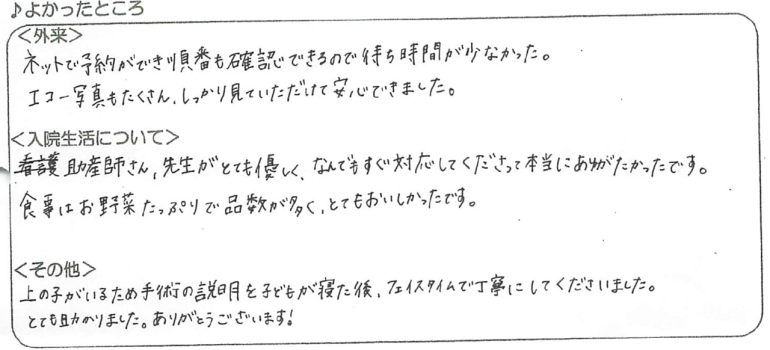 ♪よかったところ
<外来>
ネットで予約ができ順番も確認できるので待ち時間が少なかった。
エコー写真もたくさん、しっかり見ていただけて安心できました。
<入院生活について>
看護助産師さん、先生がとても優しく、なんでもすぐ対応してくださって本当にありがたかったです。
食事はお野菜たっぷりで品数が多く、とてもおいしかったです。
<その他>
上の子がいるため手術の説明を子どもが寝た後、フェイスタイムで丁寧にしてくださいました。
とても助かりました。ありがとうございます!